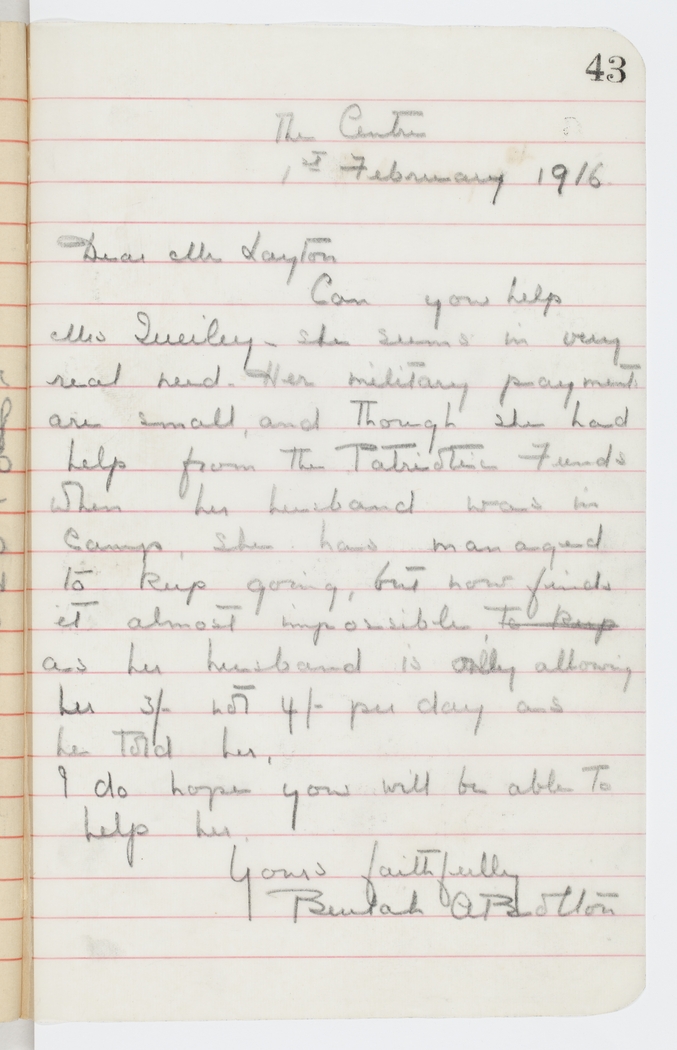 43
The Centre
1st February 1916
Dear Mr Layton
Can you help
Mrs Queiley - she seems in very
real need. Her military payments
are small, and though she had
help from the Patriotic Funds
when her husband was in
Camp, she has managed
to keep going, but now finds
it almost impossible, to keep
as her husband is only allowing
her 3/- not 4/- per day as
he told her.
I do hope you will be able to
help her.
Yours faithfully
Beulah A Bolton